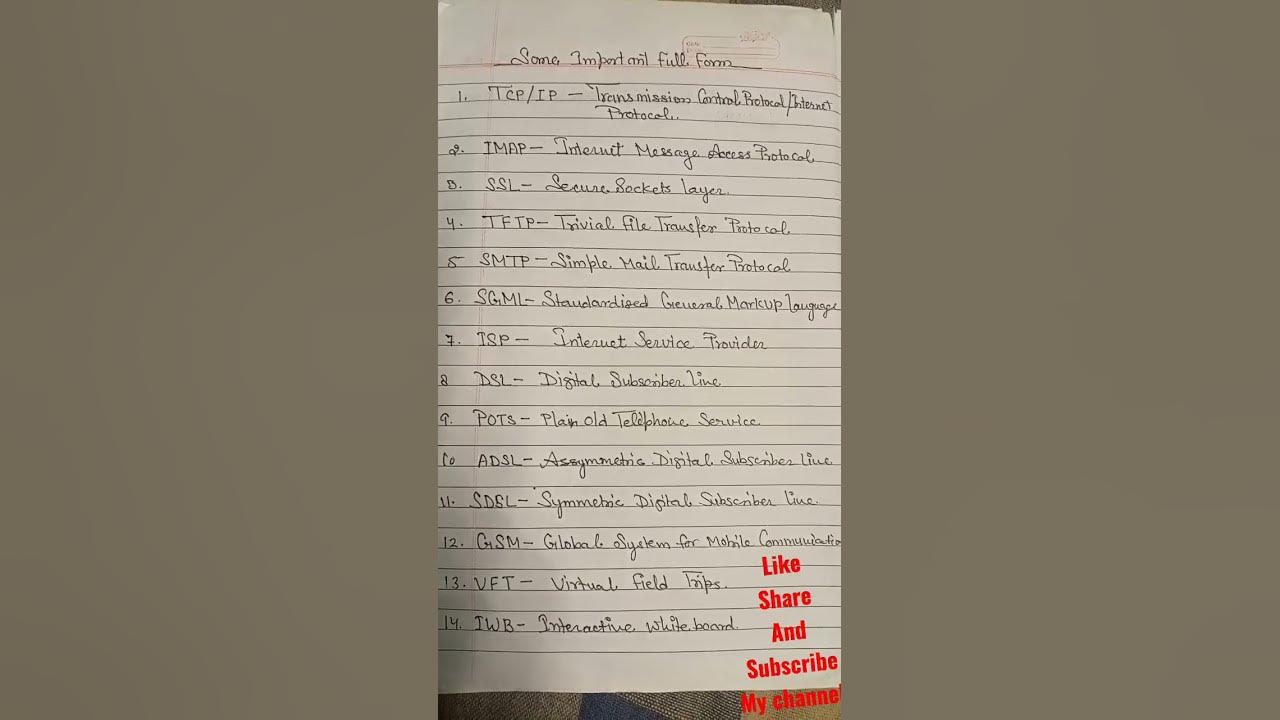 Some Important Full Form
1. TCP/IP – Transmission Control Protocol/Internet
Protocol.
2. IMAP – Internet Message Access Protocol
3. SSL – Secure Sockets layer.
4. TFTP – Trivial File Transfer Protocol
5 SMTP – Simple Mail Transfer Protocol
6. SGML – Standardised General Markup language
7. ISP – Internet Service Provider
8 DSL – Digital Subscriber line
9. POTS – Plain Old Telephone Service
10 ADSL – Assymmetric Digital Subscriber line
11. SDSL – Symmetric Digital Subscriber line.
12. GSM – Global System for Mobile Communicatio
13. VFT – Virtual Field Trips.
14. IWB – Interactive white board.
Like
Share
And
Subscribe
My channel